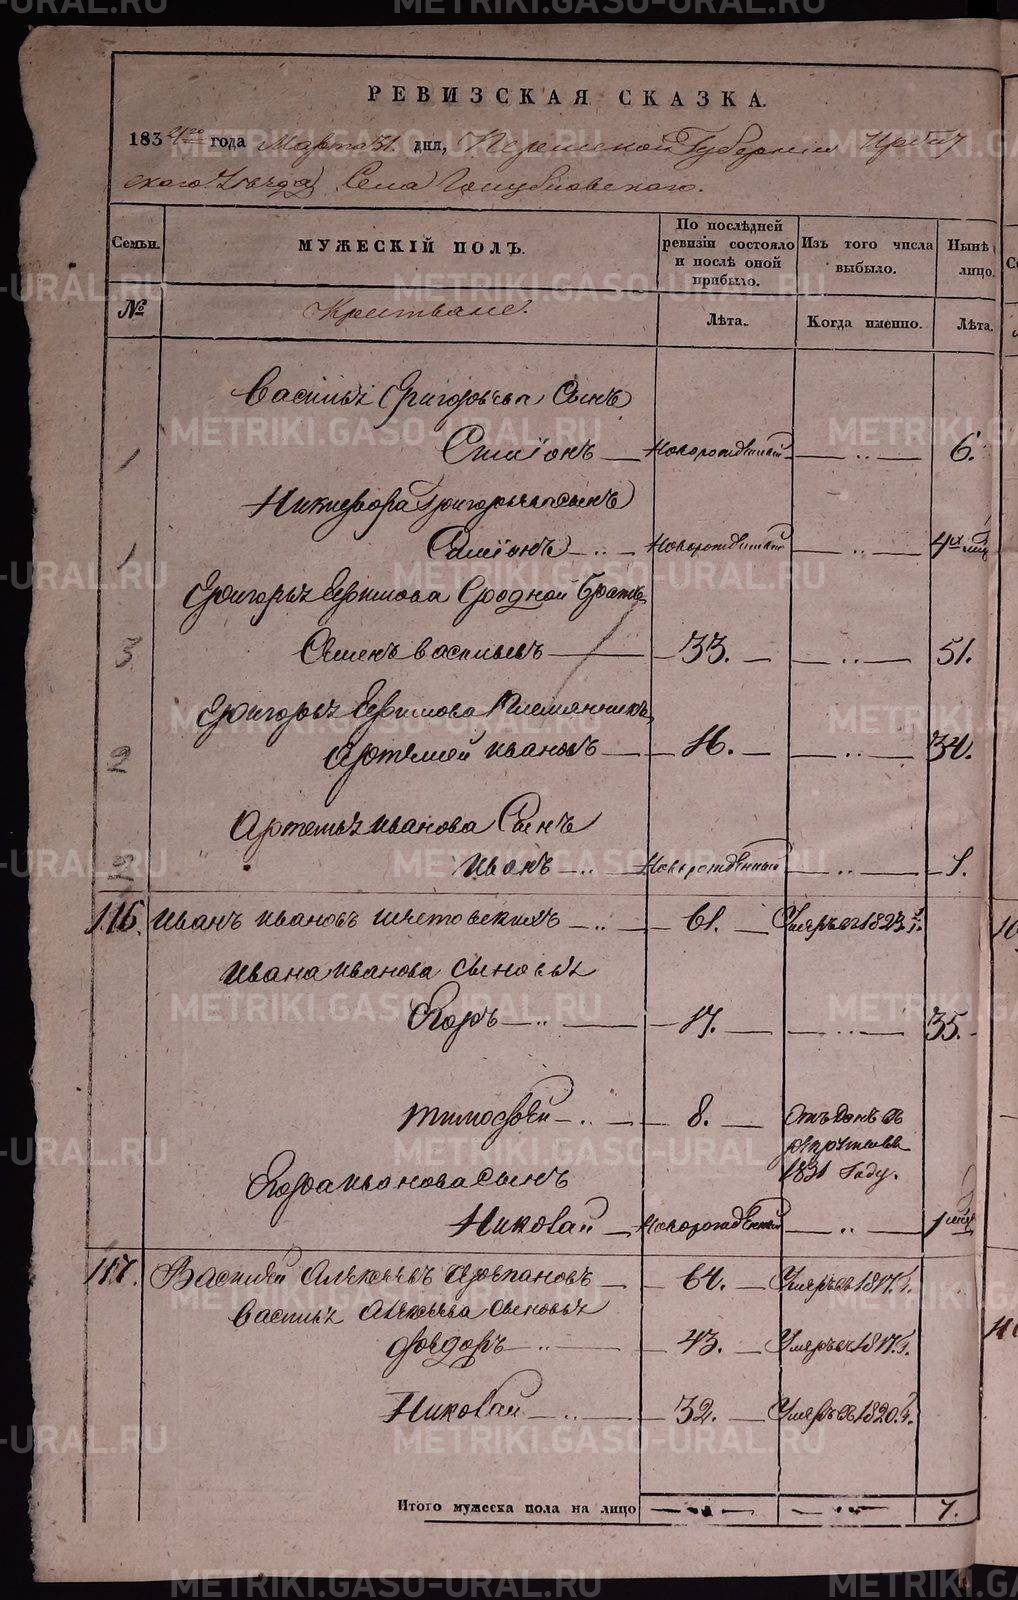 РЕВИЗСКАЯ СКАЗКА.
1834го года Марта 31. дня, Пермской Губернiи Ирбит
скаго Уѣзда Села
Семьи. МУЖЕСКIЙ ПОЛЪ. По послѣдней ревизiи состояло и послѣ оной прибыло. Изъ того числа выбыло. Нынѣ лицо.
№ Крестьяне. Лѣта. Когда именно. Лѣта.
Василья Григорьева Сынъ
1 Симiонъ Новорожденный 6.
Никифора Григорьева сынъ
1 Симiонъ Новорожденный 4х мѣц
Григорья Ефимова Сродной братъ
3 Семенъ Васильевъ 33. 51.
Григорья Ефимова Племянникъ
2 Артемей Ивановъ 16. 34.
Артемья Иванова Сынъ
2 Иванъ Новорожденный 1.
116. Иванъ Ивановъ 61. Умеръ въ 1823 г.
Ивана Иванова Сыновья
Егоръ 17. 35.
Тимофей 8. Отъданъ въ
рекруты въ
1831 Году.
Егора Иванова Сынъ
Николай Новорожденный 1 мѣц
117. Василей Алексѣевъ Арапановъ 64. Умеръ въ 1817 г.
Василья Алексѣева Сыновья
Федоръ 43. Умеръ въ 1817 г.
Николай 32. Умеръ въ 1820 г.
Итого мужеска пола на лицо 7.
METRIKI.GASO-URAL.RU